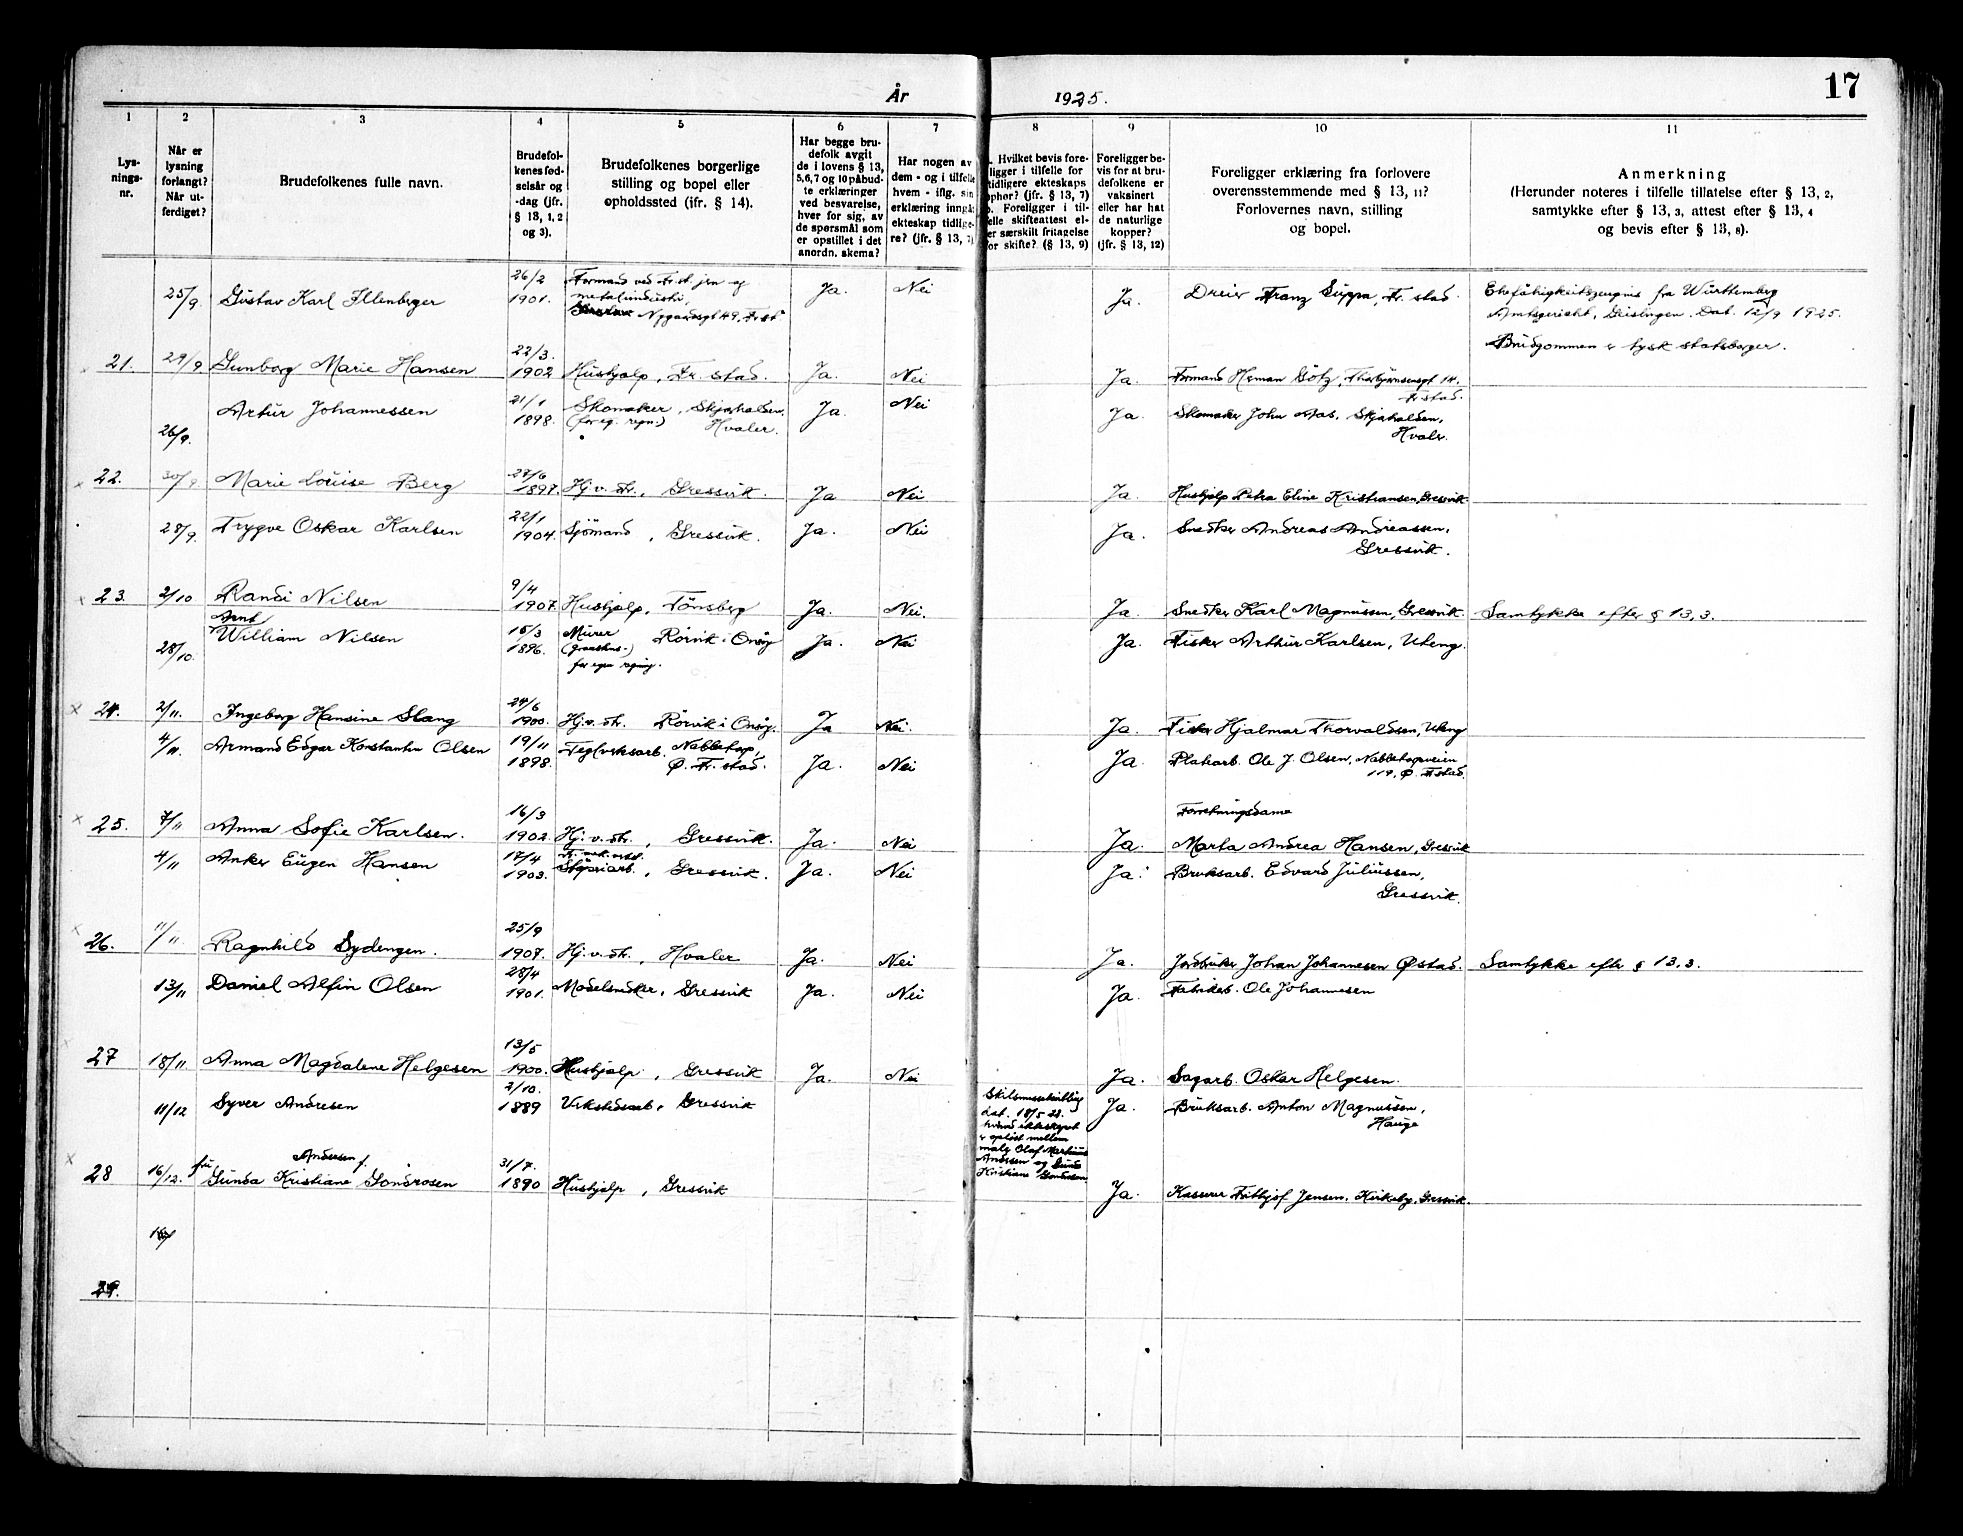 17
År 1925.
1 2 3 4 5 6 7 8 9 10 11
Lys-
nings-
nr.
Når er
lysning
forlangt?
Når ut-
ferdiget?
Brudefolkenes fulle navn.
Brudefol-
kenes fød-
selsår og
-dag (jfr.
§ 13, 1, 2
og 3).
Brudefolkenes borgerlige
stilling og bopel eller
opholdssted (ifr. § 14).
Har begge bru-
defolk avgit
de i lovens § 13,
5,6,7 og 10 påbud-
te erklæringer
ved besvarelse,
hver for sig, av
de spørsmål som
er opstillet i det
anordn. skema?
Har nogen av
dem - og i tilfelle
hvem - iflg. sin
erklæring inngåt
ekteskap tidlige-
re? (jfr. § 13, 7)
. Hvilket bevis fore-
ligger i tilfelle for
tidligere ekteskaps
ophør? (jfr. § 13, 7)
b. Foreligger i til-
felle skifteattest el-
er særskilt fritagelse
for skifte? (§ 13, 9)
Foreligger be-
vis for at bru-
defolkene er
vaksinert
eller har hat
de naturlige
kopper?
(jfr. § 13, 12)
Foreligger erklæring fra forlovere
overensstemmende med § 13, 11?
Forlovernes navn, stilling
og bopel.
Anmerkning
(Herunder noteres i tilfelle tillatelse efter § 13, 2,
samtykke efter § 13, 3, attest efter § 13, 4
og bevis efter § 13, 8).
25/9. Gustav Karl Illenberger 26/2 1901. Formand ved Fr.st. jern og
metalindustri,
Nygaardsgt 49, Fr.st. Ja. Nei Ja. Dreier Franz Suppa, Fr. stad. Ehefähigkeitszeugnis fra Württemberg
Amtsgericht, Geislingen. Dat. 12/9 1925.
Brudgommen er tysk statsborger.
21. 29/9. Gunborg Marie Hansen 22/3. 1902 Hushjælp, Fr. stad. Ja. Nei Ja. Formand Herman Götz, Thorbjørnsensgt 14.
Fr stad.
26/9. Artur Johannessen 21/1 1898. Skomaker, Skjærhalden,
(for eg. regn.) Hvaler. Ja. Nei Ja. Skomaker John Aas, Skjærhalden,
Hvaler.
22. 30/9 Marie Louise Berg 27/6 1897. Hj.v.str., Gressvik. Ja Nei Ja. Hushjelp Petra Eline Kristiansen, Gressvik
28/9. Trygve Oskar Karlsen 22/1 1904. Sjömand, Gressvik. Ja. Nei Ja. Snedker Andreas Andreassen,
Gressvik.
23. 2/10 Randi Nilsen 9/4 1907. Hushjælp, Tönsberg Ja. Nei. Ja. Snedker Karl Magnussen, Gressvik. Samtykke efter § 13, 3.
28/10. Arnt
William Nilsen 15/3 1896. Murer Rörvik i Onsöy
for egen regning. Ja. Nei Ja. Fisker Arthur Karlsen, Uteng.
24. 2/11. Ingeborg Hansine Slang 24/6 1900. Hj.v.str. Rörvik i Onsöy. Ja Nei. Ja. Fisker Hjalmar Thorvaldsen, Uteng
4/11. Armand Edgar Konstantin Olsen 19/11 1898. Teglverksarb. Nabbetorp,
Ø. Fr. stad. Ja. Nei Ja. Platearb. Ole J. Olsen, Nabbetorpveien
119, Ø. Fr.stad.
25. 7/11 Anna Sofie Karlsen. 16/3 1902. Hj.v.str., Gressvik. Ja. Nei Ja. Forretningsdame
Marta Andrea Hansen, Gressvik
4/11 Anker Eugen Hansen 17/4 1903. Støperiarb., Gressvik. Ja. Nei Ja. Bruksarb. Edvard Juliussen,
Gressvik.
26. 11/11. Ragnhild Sydengen. 25/9 1907. Hj.v.str., Hvaler Ja. Nei Ja. Jordbruker Johan Johannesen Østad. Samtykke efter § 13, 3.
13/11 Daniel Alfin Olsen 28/4 1901. Modelsnedker, Gressvik Ja. Nei Ja. Fabrikarb. Ole Johannesen
27 18/11 Anna Magdalene Helgesen 13/5 1900. Hushjælp, Gressvik Ja. Nei Ja. Sagarb. Oskar Helgesen.
11/12 Syver Andresen 2/10. 1889 Verkstedsarb., Gressvik Ja. Bruksarb. Anton Magnussen,
Hauge
28 16/12. fru Andersen f.
Gunda Kristiane Sondrosen 31/7. 1890 Hushjælp, Gressvik Skilsmissebevilling
dat. 18/5 23.
hvorved ekteskapet
er opløst mellem
maler Olaf Martinius
Andersen og Gunda
Kristiane Sondrosen Ja. Kasserer Fritjof Jensen, Kirkeby, Gressvik.
29.